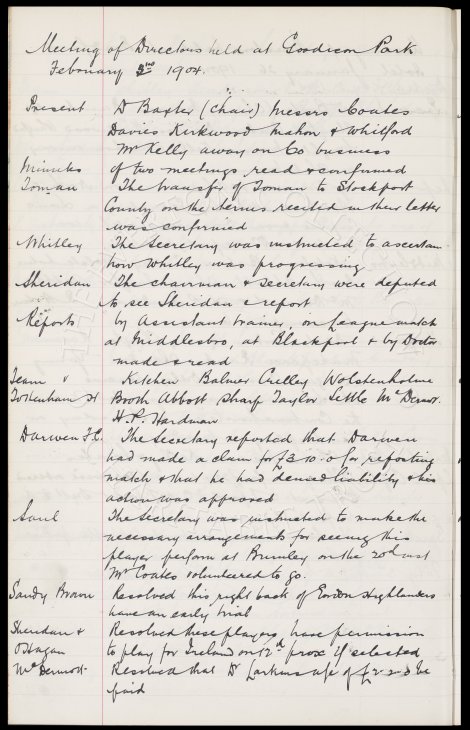 Meeting of Directors held at Goodison Park
February 3rd 1904.
Present Dr Baxter (Chair) Messrs Coates
Davies Kirkwood Mahon & Whitford
Mr Kelly away on Co business
Minutes of two meetings read & confirmed
Toman The transfer of Toman to Stockport
County on the terms recited in their letter
was confirmed
Whitley The Secretary was instructed to ascertain
how Whitley was progressing
Sheridan The chairman & secretary were deputed
to see Sheridan & report
Reports by Assistant trainer, on League match
at Middlesboro, at Blackpool & by Doctor
made & read
Team v Kitchen Balmer Crelley Wolstenholme
Tottenham H Booth Abbott Sharp Taylor Settle McDermott
H.P. Hardman
Darwen F.C. The Secretary reported that Darwen
had made a claim for £3-10-0 for reporting
match & that he had denied liability & his
action was approved
Saul The Secretary was instructed to make the
necessary arrangements for seeing this
player perform at Burnley on the 20th inst
Mr Coates volunteered to go.
Sandy Brown Resolved this right back of Gordon Highlanders
have an early trial
Sheridan & Resolved these players have permission
O'Hagan to play for Ireland on 12th prox if selected
McDermott Resolved that Dr Larkins a/c of £2-2-0 be
paid